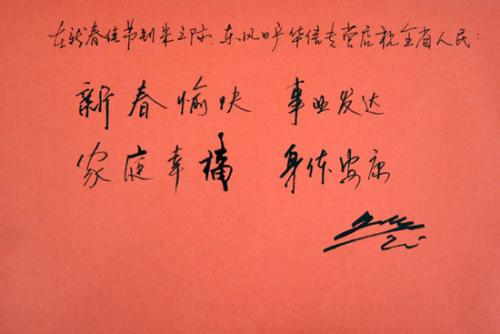 在新春佳节到来之际，东风日产华信专营店祝全省人民：
新春愉快 事业发达
家庭幸福 身体安康